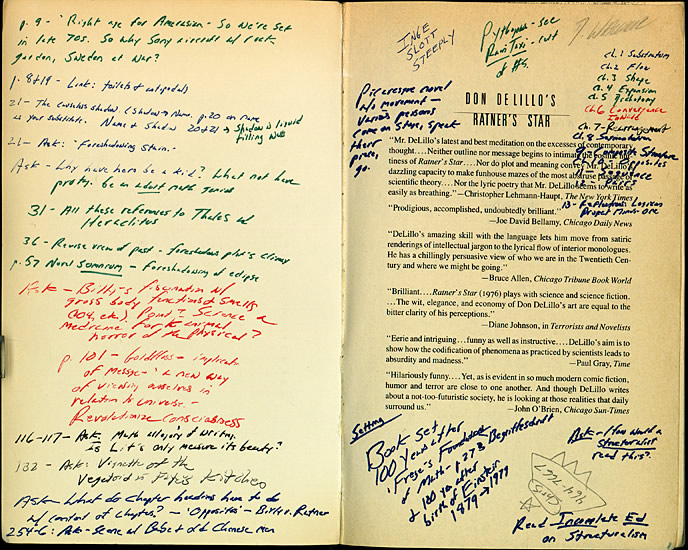 p. 9 - 'Right age for American - So we're set
in late 70s. So why Sony aircraft w/ rock
garden, Sweden at War?
p. 8 & 19 - Link: toilets &
21 - The shadow (Shadow + Name. p. 20 on name
as your substitute. Name & Shadow 20 & 21 → Shadow is liquid
filling well
21 - Ask: 'Foreshadowing stain.'
Ask - Why have hero be a kid? What not have
protg. be an adult math genius
31 - All these references to Thales w/
Heraclitus
36 - Revise view of past - foreshadows plot's climax
p. 57 Noval Somnium - Foreshadowing of eclipse
Ask - Billy's fascination w/
gross body functions & smells
(104, etc.) Point? Science a
medicine for the animal
horror of the physical?
p. 101 - Goldfloss - implicate
of message - 'a new way
of viewing ourselves in
relation to universe -
Revolutionize Consciousness
116-117 - Ask: Math allegory of writing.
Is Lit's only measure its beauty?
132 - Ask: Vignette of the
Vegetoid in Kitchen
Ask - What do chapter headings have to do
w/ content of chapters? - 'Opposites' - Billy, Ratner
254-6: Ask - Scene w/ Babe & old Chinese man
INGE
SLOTT
STEEPLY
Pythagoras - see
Rumi Taxi - cult
of #s.
Ch. 1 Substratum
Ch. 2 Flow
Ch. 3 Shape
Ch. 4 Expansion
Ch. 5 Dichotomy
Ch. 6 Convergence
Inward
Ch. 7 - Rearrangement
Ch. 8 Segmentation
9 - Composite Structure
10 - Opposites
11 - Sequence
12 - Pairs
13 - Replication: Logicon
Project Minus-One
Picaresque novel
w/o movement -
Various persons
come on stage, speak
their
piece,
go.
DON DELILLO'S
RATNER'S STAR
"Mr. DeLillo's latest and best meditation on the excesses of contemporary
thought.... Neither outline nor message begins to intimate the
tiness of Ratner's Star.... Nor do plot and meaning convey Mr. DeLillo's
dazzling capacity to make funhouse mazes of the most abstruse passages of
scientific theory.... Nor the lyric poetry that Mr. DeLillo seems to write as
easily as breathing."—Christopher Lehmann-Haupt, The New York Times
"Prodigious, accomplished, undoubtedly brilliant."
—Joe David Bellamy, Chicago Daily News
"DeLillo's amazing skill with the language lets him move from satiric
renderings of intellectual jargon to the lyrical flow of interior monologues.
He has a chillingly persuasive view of who we are in the Twentieth Cen-
tury and where we might be going."
—Bruce Allen, Chicago Tribune Book World
"Brilliant.... Ratner's Star (1976) plays with science and science fiction.
...The wit, elegance, and economy of Don DeLillo's art are equal to the
bitter clarity of his perceptions."
—Diane Johnson, in Terrorists and Novelists
"Eerie and intriguing...funny as well as instructive.... DeLillo's aim is to
show how the codification of phenomena as practiced by scientists leads to
absurdity and madness."
—Paul Gray, Time
"Hilariously funny.... Yet, as is evident in so much modern comic fiction,
humor and terror are close to one another. And though DeLillo writes
about a not-too-futuristic society, he is looking at those realities that daily
surround us."
—John O'Brien, Chicago Sun-Times
Setting
Book set
100 years after
Frege's Foundations
of Math - p. 273 Begriffsschrift
& 100 yrs after
birth of Einstein
1879 → 1979
Ask - How would a
structuralist
read this?
Chris
464-7267
Read Incomplete Ed
on Structuralism